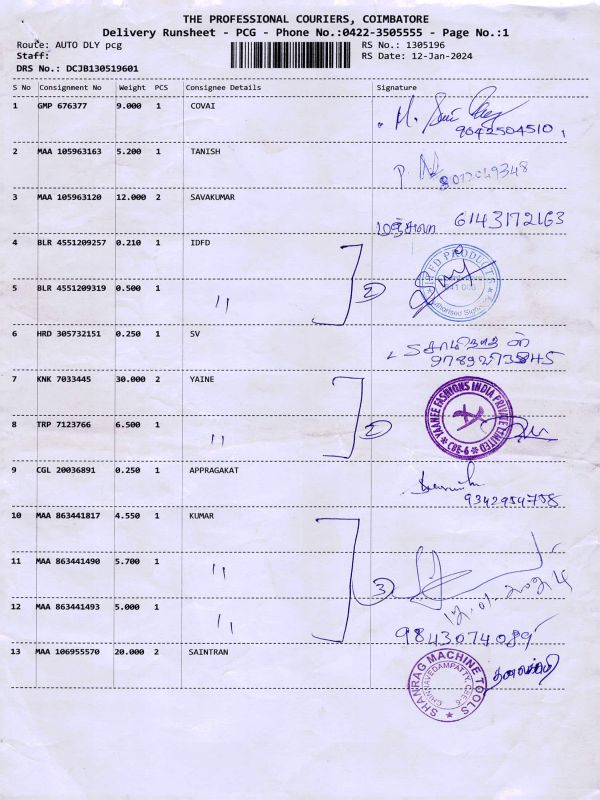 THE PROFESSIONAL COURIERS, COIMBATORE
Delivery Runsheet - PCG - Phone No.:0422-3505555 - Page No.:1
Route: AUTO DLY pcg RS No.: 1305196
Staff: RS Date: 12-Jan-2024
DRS No.: DCJB130519601
S No Consignment No Weight PCS Consignee Details Signature
1 GMP 676377 9.000 1 COVAI
9042504510
2 MAA 105963163 5.200 1 TANISH
8072049348
3 MAA 105963120 12.000 2 SAVAKUMAR
மஞ்சுளா 6143172163
4 BLR 4551209257 0.210 1 IDFD
5 BLR 4551209319 0.500 1 〃 2
6 HRD 305732151 0.250 1 SV
9789273845
7 KNK 7033445 30.000 2 YAINE
YAANEE FASHIONS INDIA PRIVATE LIMITED
CBE-6
8 TRP 7123766 6.500 1 〃 2
9 CGL 20036891 0.250 1 APPRAGAKAT
9342954758
10 MAA 863441817 4.550 1 KUMAR
11 MAA 863441490 5.700 1 〃 3
12.01.2024
12 MAA 863441493 5.000 1 〃
9843074089
13 MAA 106955570 20.000 2 SAINTRAN
SHANRAG MACHINE TOOLS
CHINNAVEDAMPATTY, CBE-6
தனலட்சுமி